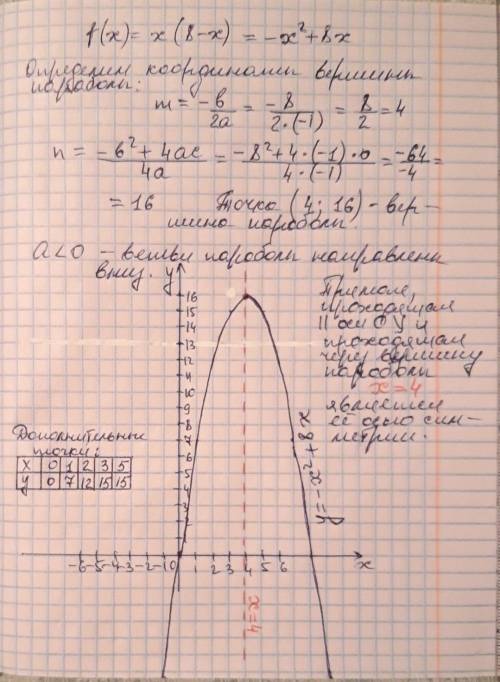 f(x) = x(8-x) = -x²+8x
Определим координаты вершины
параболы:
m = -b/2a = -8/2·(-1) = 8/2 = 4
n = -b²+4ac/4a = -8²+4·(-1)·0/4·(-1) = -64/-4 =
= 16 Точка (4; 16) - вер-
шина параболы.
a<0 - ветви параболы направлены
вниз.
y
Прямая,
проходящая
|| оси ОУ и
проходящая
через вершину
параболы
x=4
является
её осью сим-
метрии.
16
15
13
12
11
10
9
8
7
6
5
4
3
2
y=-x²+8x
Дополнительные
точки:
x 0 1 2 3 5
y 0 7 12 15 15
-6 -5 -4 -3 -2 -1 0 1 2 3 4 5 6 x
4=x